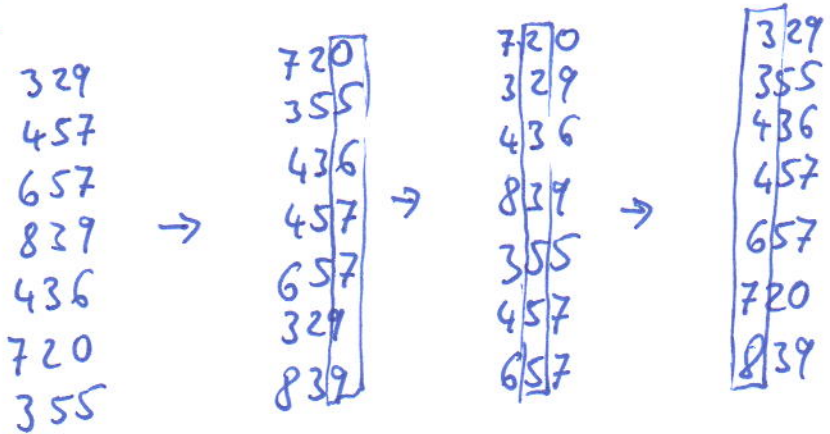 329
457
657
839
436
720
355
→
720
355
436
457
657
329
839
→
720
329
436
839
355
457
657
→
329
355
436
457
657
720
839